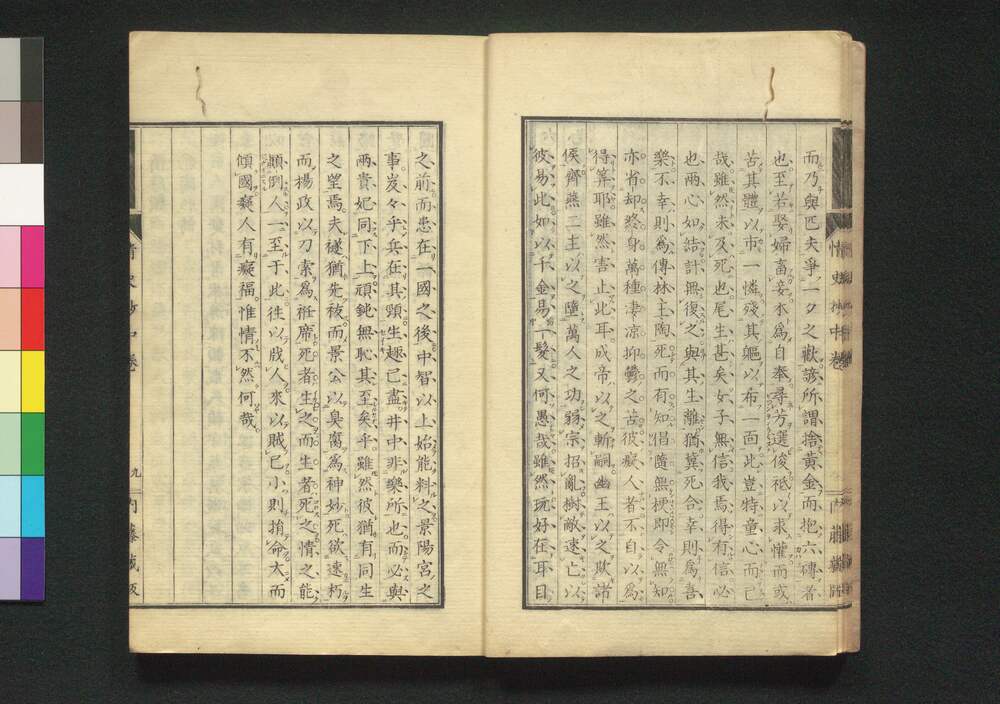 而乃與匹夫爭一夕之歡諺所謂捨黃金而抱六磚者
也至若娶婦畜妾本爲自奉尋芳選俊祇以求懽而或
苦其體以市一憐殘其軀以希一面此豈特童心而已
哉雖然未及死也尾生甚矣女子無信我焉得有信必
也兩心如結計無復之與其生離猶冀死合幸則爲吾
樂不幸則爲傳林主陶死而有知倡隨無梗即令無知
亦省却終身萬種淒凉抑鬱之苦彼癡人者不自以爲
得筭耶雖然害止此耳成帝以之斬嗣幽王以之欺諾
侯齊燕二主以之墮萬人之功弱宗招亂樹敵速亡以
彼易此如以千金易一髮又何愚哉雖然玩好在耳目
之前而患在一國之後中智以上始能料之景陽宮之
事岌々乎兵在其頸生趣已盡井中非樂所也而必與
兩貴妃同下上頑鈍無恥其至矣乎雖然彼猶有同生
之望焉夫襚猶先祓而景公以臭腐爲神妙死欲速朽
而楊政以刀索爲衽席死者生之而生者死之情之能
顛倒人一至于此往以戕人來以賊己小則捐命大而
傾國癡人有癡福惟情不然何哉
情史抄中卷
九
内藤藏板